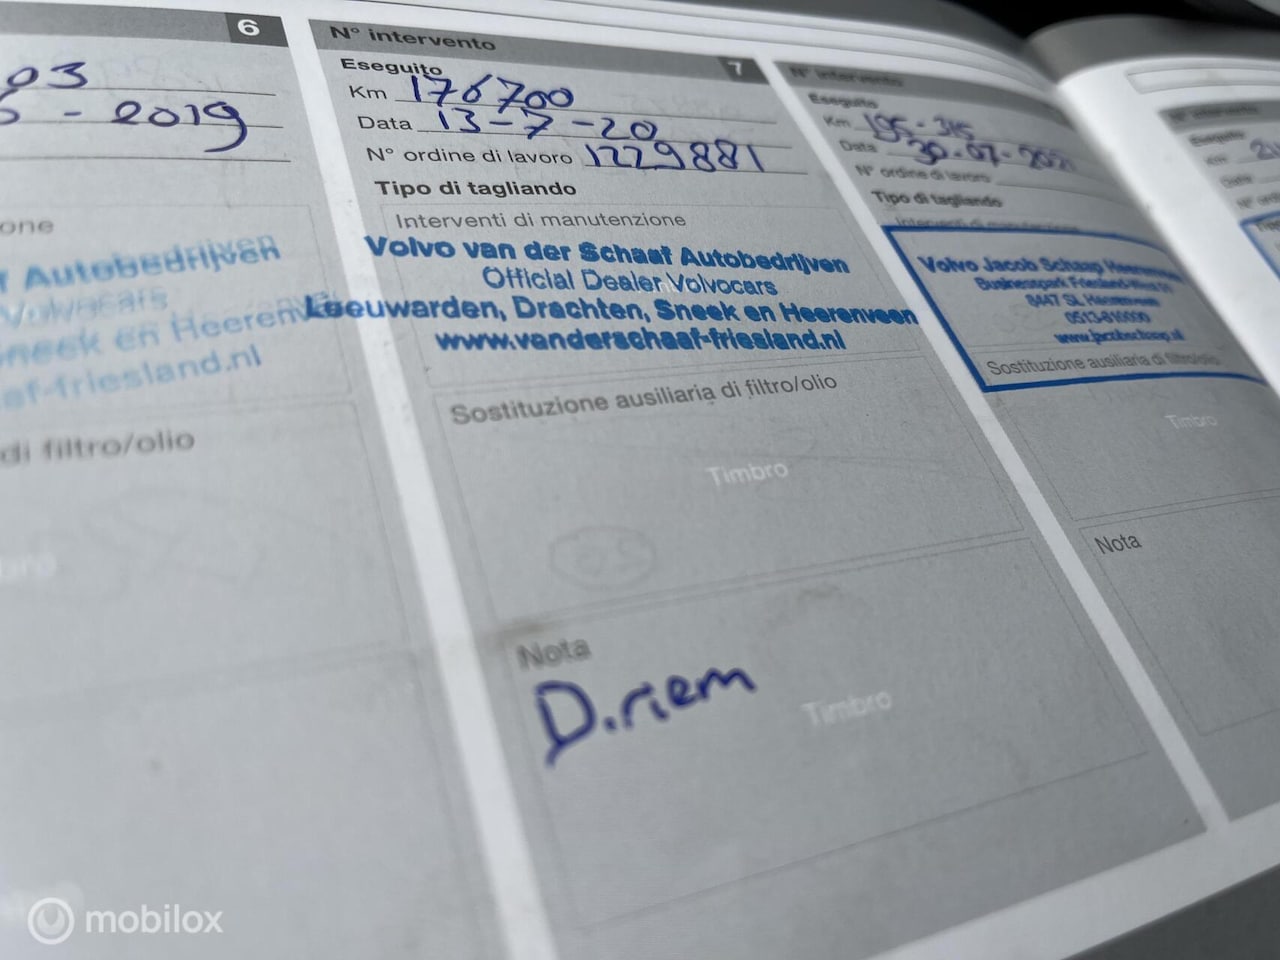 6
03
- 2019
one
f Autobedrijven
Volvocars
Sneek en Heerenveen
af-friesland.nl
di filtro/olio
N° intervento
7
Eseguito
Km 176700
Data 13-7-20
N° ordine di lavoro 1229881
Tipo di tagliando
Interventi di manutenzione
Volvo van der Schaaf Autobedrijven
Official Dealer Volvocars
Leeuwarden, Drachten, Sneek en Heerenveen
www.vanderschaaf-friesland.nl
Sostituzione ausiliaria di filtro/olio
Timbro
Nota
D.riem
Timbro
N° intervento
Eseguito
Km 195-315
Data 30-07-2021
N° ordine di lavoro
Tipo di tagliando
Volvo Jacob Schaap Heerenveen
8447 SL Heerenveen
www.jacobschaap.nl
Sostituzione ausiliaria di filtro/olio
Timbro
Nota
mobilox